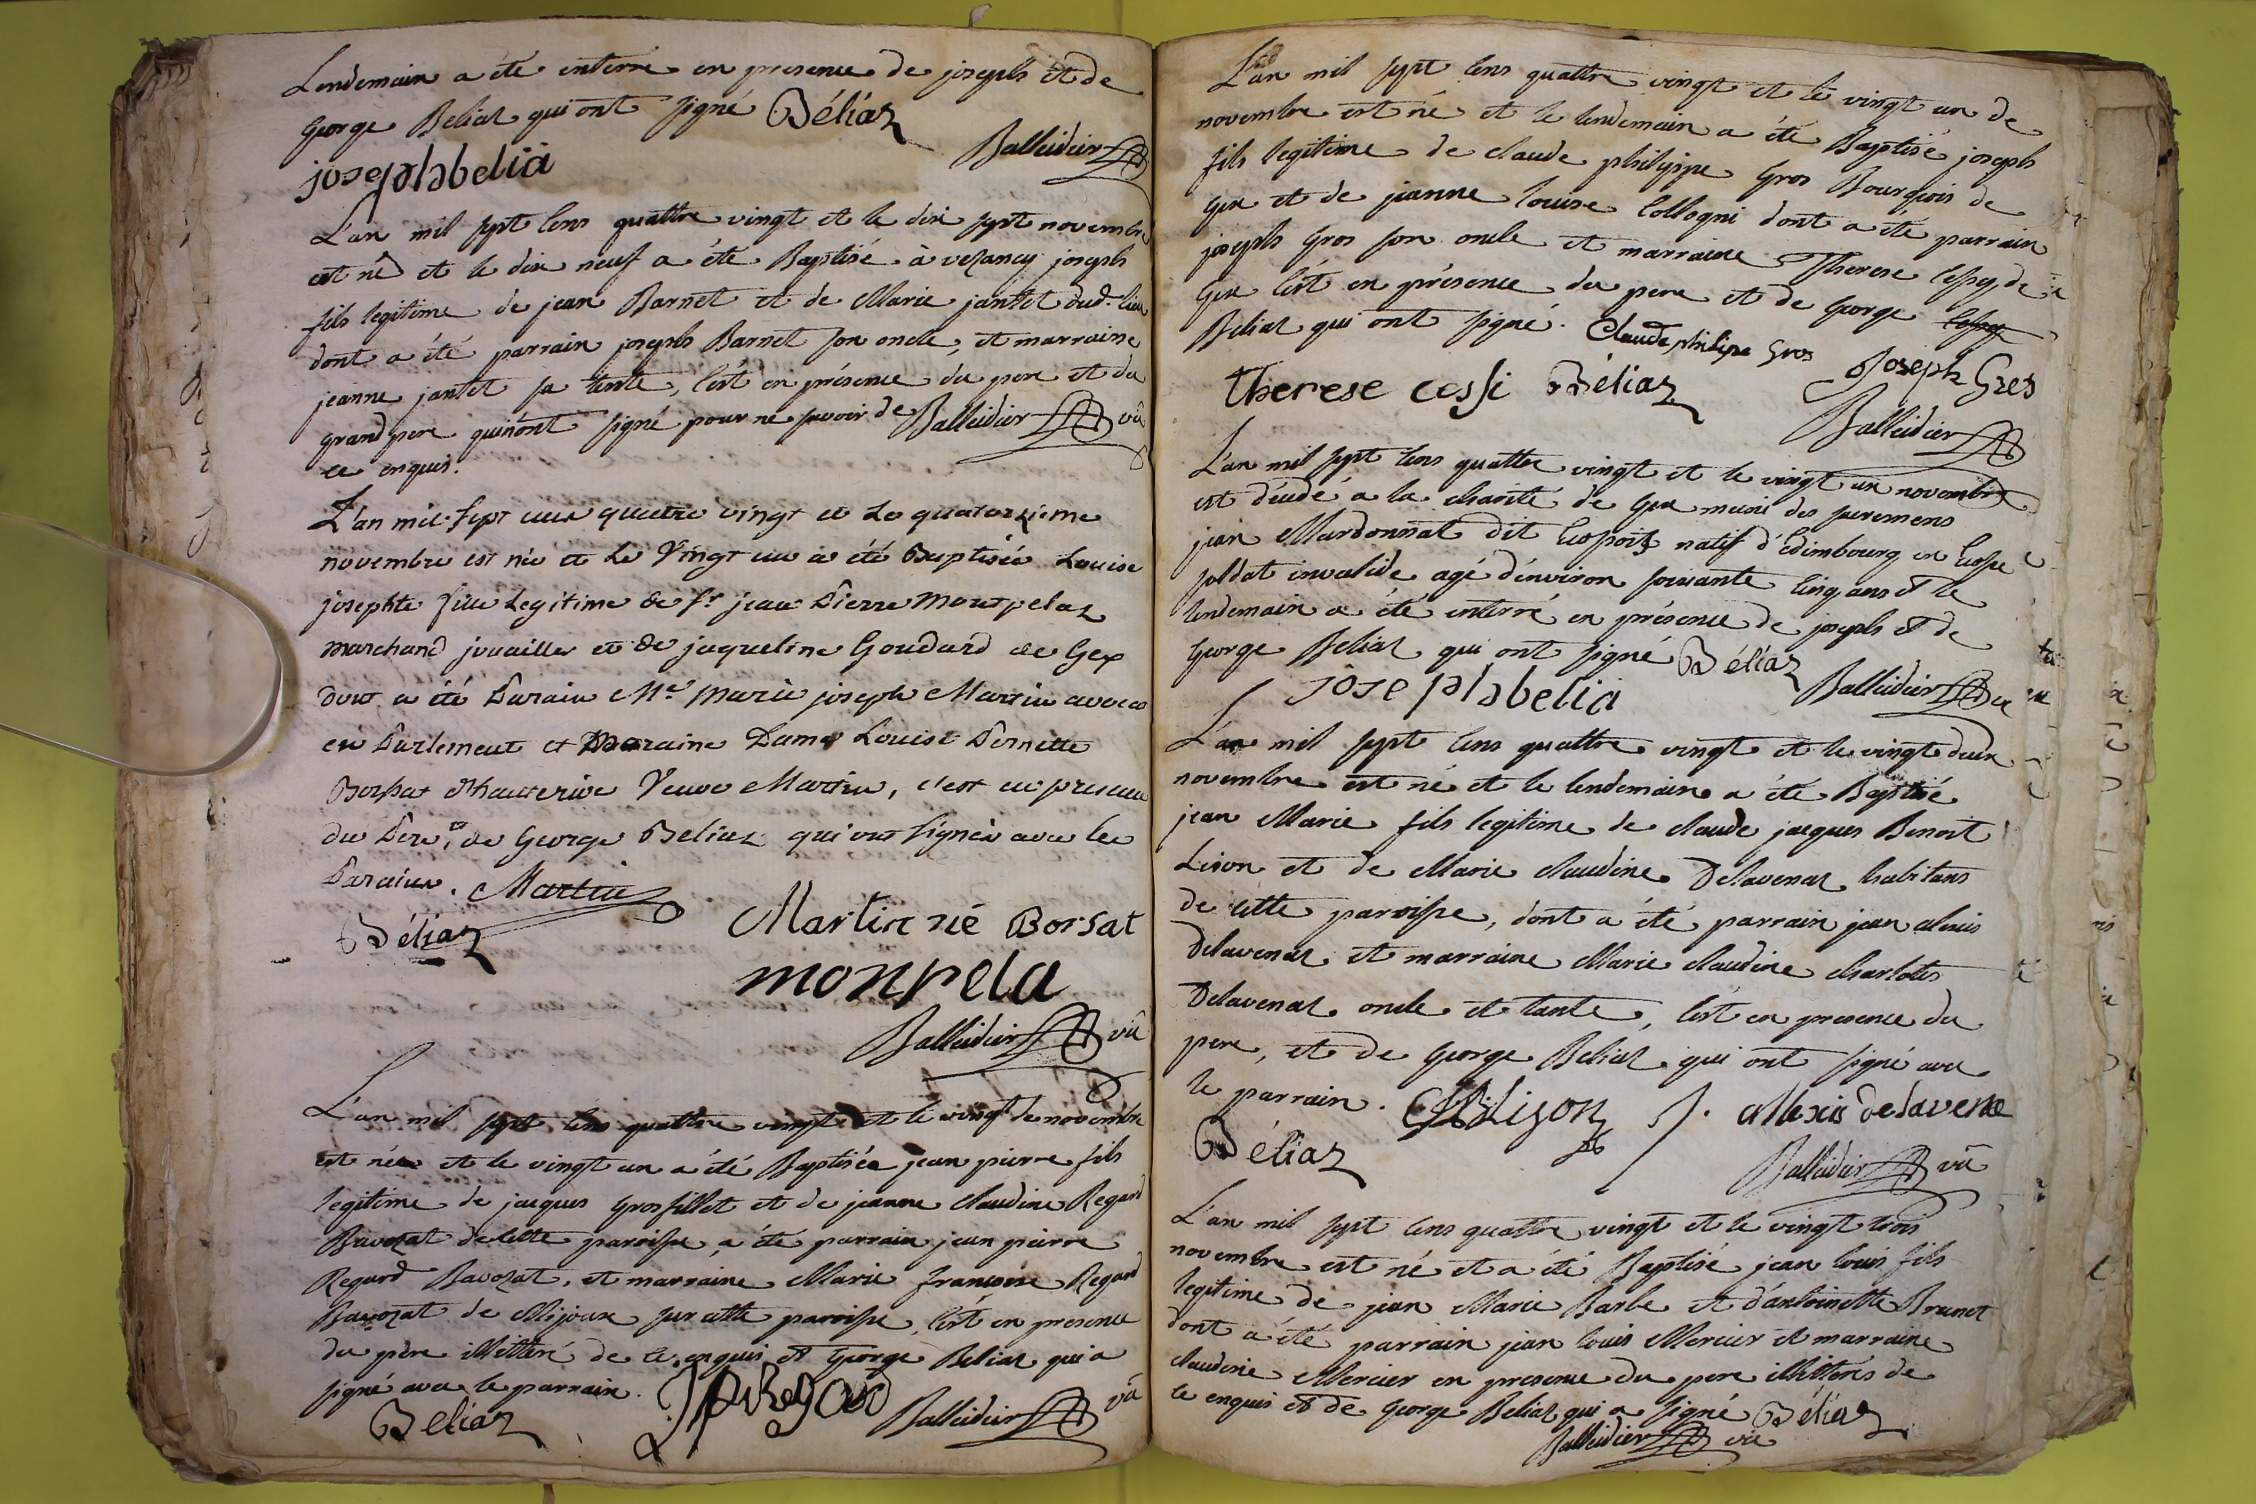 Lendemain a été enterré en presence de joseph et de
George Beliaz qui ont signé Béliaz
Balleidier
josephbelia
L'an mil sept cens quattre vingt et le dix sept novembre
est né et le dix neuf a été Baptisé à vesancy joseph
fils legitime de jean Barnet et de Marie jantet dud. lieu
dont a été parrain joseph Barnet son oncle, et marraine
jeanne jantet sa tante, c'est en présence du pere et du
grand pere qui n'ont signé pour ne savoir de Balleidier vic
ce enquis.
L'an mil sept cens quatre vingt et Le quatorzieme
novembre est née et Le Vingt un a été Baptisée Louise
josephte fille Legitime de sr jean Pierre Monpelaz
marchand jouailler et de jaqueline Goudard de Gex
dont a été Parain Me Marie joseph Martin avocat
en Parlement et Maraine Dame Louise Pernette
Borsat d'hauterive Veuve Martin, c'est en presence
du Pere, et de George Beliaz qui ont signés avec les
Parains. Martin
Béliaz
Martin né Borsat
monpela
Balleidier vic
L'an mil sept cens quattre vingt et le vingt de novembre
est née et le vingt un a été Baptisée jean pierre fils
legitime de jacques Grosfillet et de jeanne claudine Regard
Bavozat de cette paroisse, a été parrain jean pierre
Regard Bavozat, et marraine Marie françoise Regard
Bavozat de Mijoux sur cette paroisse, c'est en presence
du père illitteré de ce enquis et George Beliaz qui a
signé avec le parrain. JpRegard
Beliaz
Balleidier vic
L'an mil sept cens quattre vingt et le vingt un de
novembre est né et le lendemain a été Baptisé joseph
fils legitime de claude philippe Gros Bourgeois de
Gex et de jeanne louise Collogni dont a été parrain
joseph Gros son oncle et marraine Therese Cessy de
Gex c'est en présence du pere et de George
Beliaz qui ont signé. Claude philipe Gros
Joseph Gros
Therese cessi Béliaz
Balleidier
L'an mil sept cens quattre vingt et le vingt un novembre
est décédé a la charité de Gex muni des sacremens
jean Mardonnat dit natif d'Edimbourg en Ecosse
soldat invalide agé d'environ soixante cinq ans et le
lendemain a été enterré en présence de joseph et de
George Beliaz qui ont signé Béliaz
josephbelia
Balleidier vic
L'an mil sept cens quattre vingt et le vingt deux
novembre est né et le lendemain a été Baptisé
jean Marie fils legitime de claude jacques Benoit
Lison et de Marie claudine Delavenaz habitans
de cette paroisse, dont a été parrain jean alexis
Delavenaz et marraine Marie claudine charlote
Delavenaz oncle et tante, c'est en presence du
pere, et de George Beliaz qui ont signé avec
le parrain. CJBLizon J. allexis delavena
Béliaz
Balleidier vic
L'an mil sept cens quattre vingt et le vingt trois
novembre est né et a été Baptisé jean louis fils
legitime de jean Marie Barbe et d'antoinette Brunet
dont a été parrain jean louis Mercier et marraine
claudine Mercier en presence du pere illitterés de
ce enquis et de George Beliaz qui a signé Béliaz
Balleidier vic